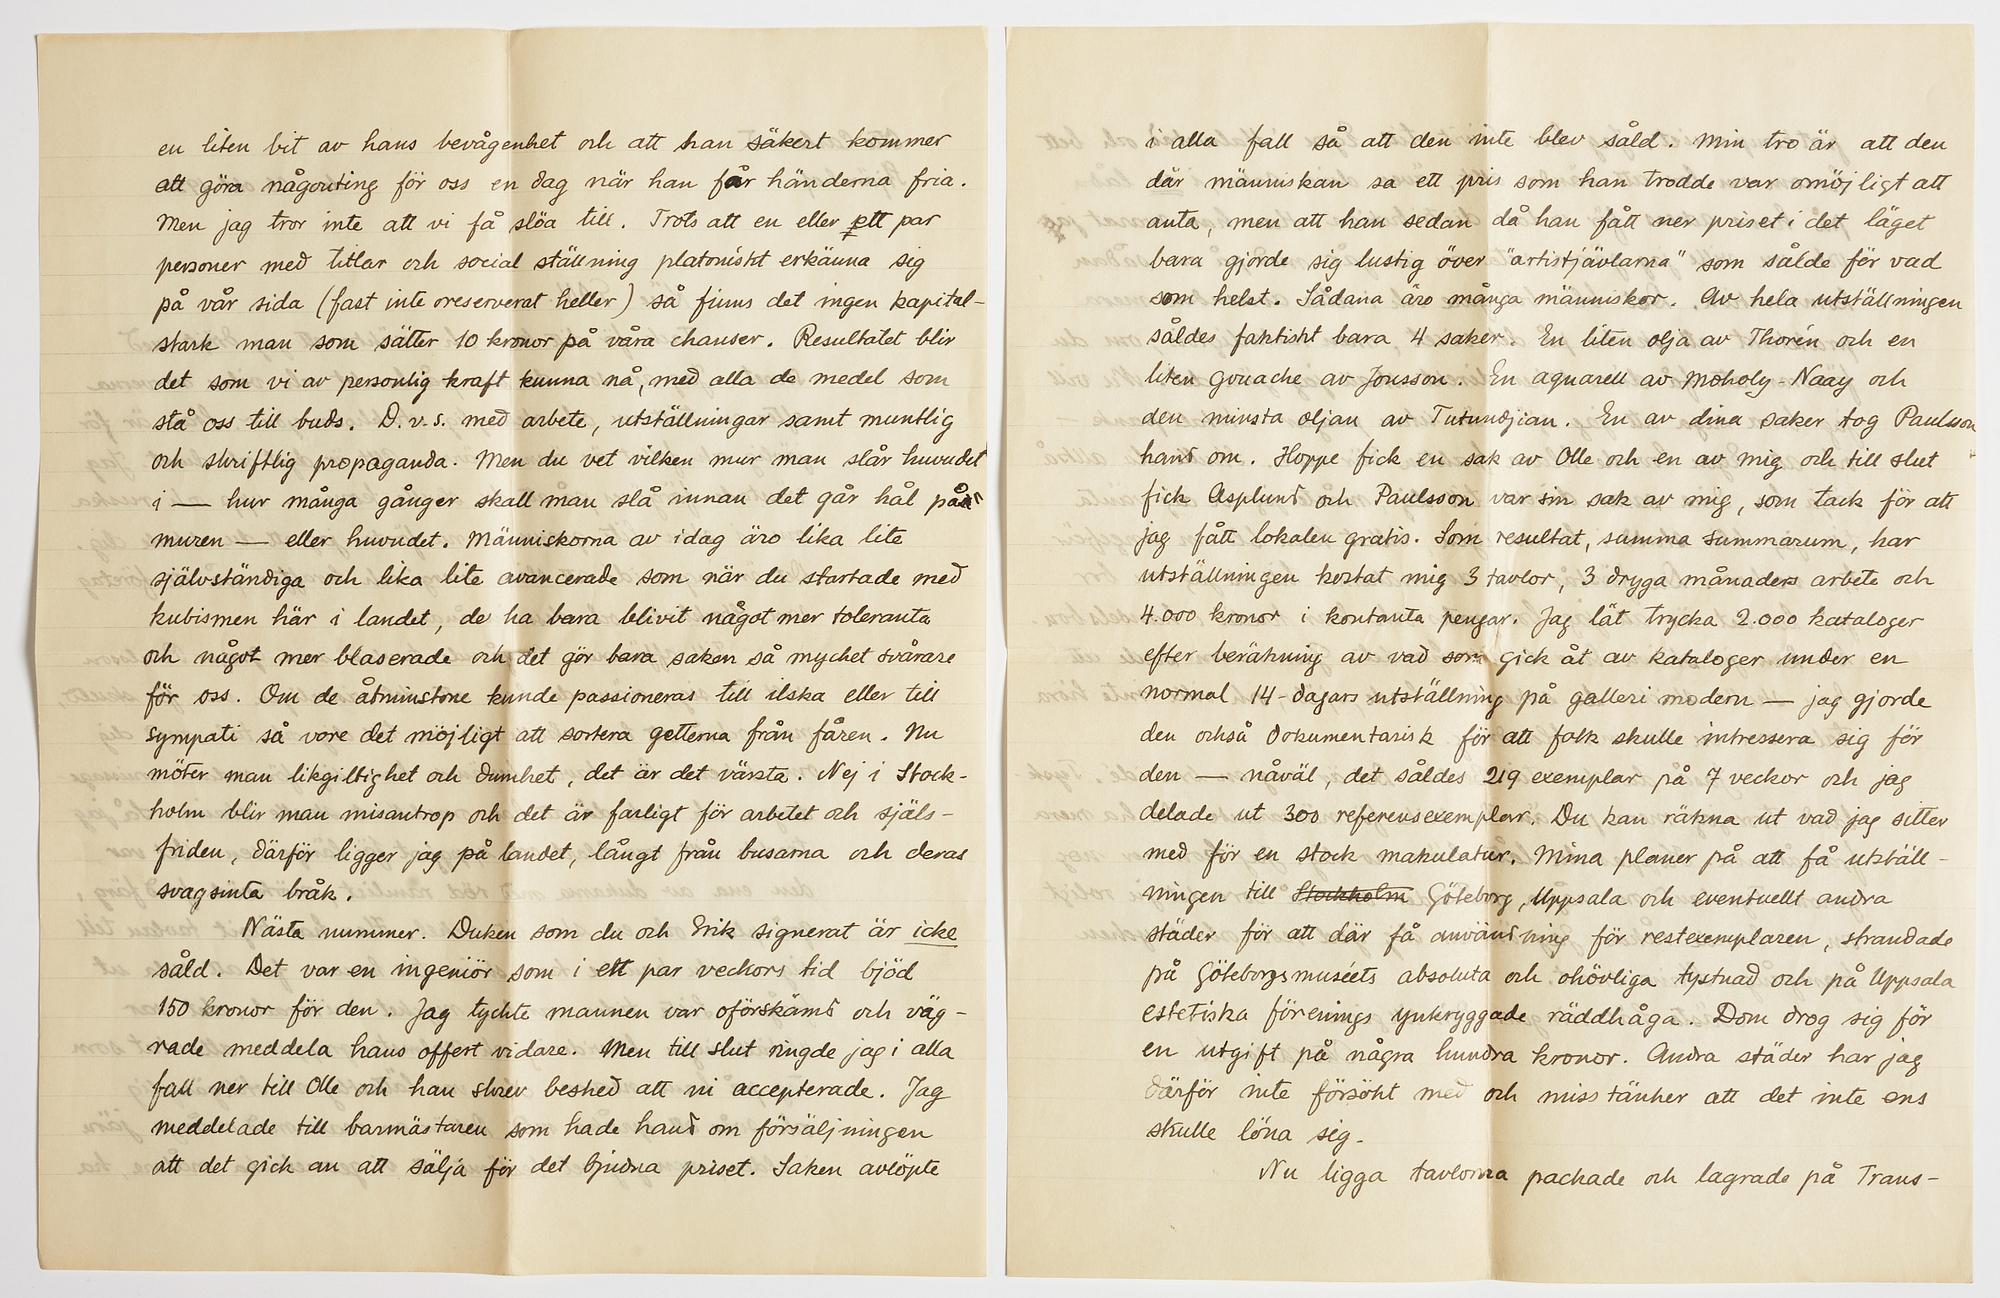 en liten bit av hans bevågenhet och att han säkert kommer
att göra någonting för oss en dag när han får händerna fria.
Men jag tror inte att vi få slöa till. Trots att en eller ett par
personer med titlar och social ställning platoniskt erkänna sig
på vår sida (fast inte oreserverat heller) så finns det ingen kapital-
stark man som sätter 10 kronor på våra chanser. Resultatet blir
det som vi av personlig kraft kunna nå, med alla de medel som
stå oss till buds. D.v.s. med arbete, utställningar samt muntlig
och skriftlig propaganda. Men du vet vilken mur man slår huvudet
i — hur många gånger skall man slå innan det går hål på
muren — eller huvudet. Människorna av idag äro lika lite
självständiga och lika lite avancerade som när du startade med
kubismen här i landet, de ha bara blivit något mer toleranta
och något mer blaserade och det gör bara saken så mycket svårare
för oss. Om de åtminstone kunde passioneras till ilska eller till
sympati så vore det möjligt att sortera getterna från fåren. Nu
möter man likgiltighet och dumhet, det är det värsta. Nej i Stock-
holm blir man misantrop och det är farligt för arbetet och själs-
friden, därför ligger jag på landet, långt från busarna och deras
svagsinta bråk.
Nästa nummer. Duken som du och Erik signerat är icke
såld. Det var en ingeniör som i ett par veckors tid bjöd
150 kronor för den. Jag tyckte mannen var oförskämd och väg-
rade meddela hans offert vidare. Men till slut ringde jag i alla
fall ner till Olle och han skrev besked att ni accepterade. Jag
meddelade till barmästaren som hade hand om försäljningen
att det gick an att sälja för det bjudna priset. Saken avlöpte
i alla fall så att den inte blev såld. Min tro är att den
där människan sa ett pris som han trodde var omöjligt att
anta, men att han sedan då han fått ner priset i det läget
bara gjorde sig lustig över "artistjävlarna" som sålde för vad
som helst. Sådana äro många människor. Av hela utställningen
såldes faktiskt bara 4 saker. En liten olja av Thorén och en
liten gouache av Jonsson. En aquarell av Moholy-Naay och
den minsta oljan av Tutundjian. En av dina saker tog Paulsson
hand om. Hoppe fick en sak av Olle och en av mig och till slut
fick Asplund och Paulsson var sin sak av mig, som tack för att
jag fått lokalen gratis. Som resultat, summa summarum, har
utställningen kostat mig 3 tavlor, 3 dryga månaders arbete och
4.000 kronor i kontanta pengar. Jag lät trycka 2.000 kataloger
efter beräkning av vad som gick åt av kataloger under en
normal 14-dagars utställning på galleri modern — jag gjorde
den också dokumentarisk för att folk skulle intressera sig för
den — nåväl, det såldes 219 exemplar på 7 veckor och jag
delade ut 300 referensexemplar. Du kan räkna ut vad jag sitter
med för en stock makulatur. Mina planer på att få utställ-
ningen till Stockholm Göteborg, Uppsala och eventuellt andra
städer för att där få användning för restexemplaren, strandade
på Göteborgsmuséets absoluta och ohövliga tystnad och på Uppsala
estetiska förenings ynkryggade räddhåga. Dom drog sig för
en utgift på några hundra kronor. Andra städer har jag
därför inte försökt med och misstänker att det inte ens
skulle löna sig.
Nu ligga tavlorna packade och lagrade på Trans-